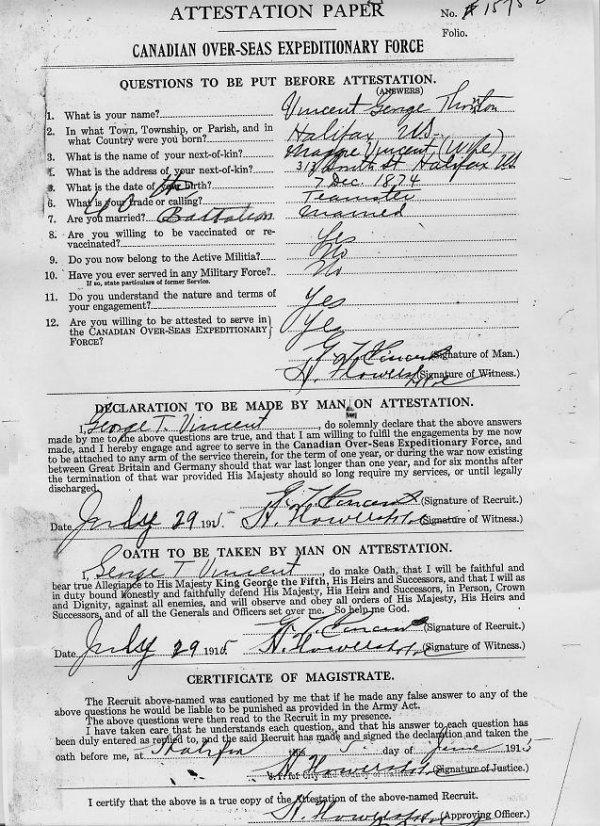 ATTESTATION PAPER
No.
Folio.
CANADIAN OVER-SEAS EXPEDITIONARY FORCE
QUESTIONS TO BE PUT BEFORE ATTESTATION.
(ANSWERS)
1. What is your name? Vincent George Thornton
2. In what Town, Township, or Parish, and in
what Country were you born? Halifax NS
3. What is the name of your next-of-kin? Maggie Vincent (Wife)
4. What is the address of your next-of-kin? Smith St Halifax NS
5. What is the date of your birth? 7 Dec. 1874
6. What is your trade or calling? Teamster
7. Are you married? Battalion Married
8. Are you willing to be vaccinated or re-
vaccinated? Yes
9. Do you now belong to the Active Militia? No
10. Have you ever served in any Military Force? No
If so, state particulars of former Service.
11. Do you understand the nature and terms of
your engagement? Yes
12. Are you willing to be attested to serve in
the CANADIAN OVER-SEAS EXPEDITIONARY
FORCE? Yes
G T Vincent (Signature of Man.)
(Signature of Witness.)
DECLARATION TO BE MADE BY MAN ON ATTESTATION.
I, George T. Vincent, do solemnly declare that the above answers
made by me to the above questions are true, and that I am willing to fulfil the engagements by me now
made, and I hereby engage and agree to serve in the Canadian Over-Seas Expeditionary Force, and
to be attached to any arm of the service therein, for the term of one year, or during the war now existing
between Great Britain and Germany should that war last longer than one year, and for six months after
the termination of that war provided His Majesty should so long require my services, or until legally
discharged.
G T Vincent (Signature of Recruit.)
Date July 29 1915 (Signature of Witness.)
OATH TO BE TAKEN BY MAN ON ATTESTATION.
I, George T Vincent, do make Oath, that I will be faithful and
bear true Allegiance to His Majesty King George the Fifth, His Heirs and Successors, and that I will as
in duty bound honestly and faithfully defend His Majesty, His Heirs and Successors, in Person, Crown
and Dignity, against all enemies, and will observe and obey all orders of His Majesty, His Heirs and
Successors, and of all the Generals and Officers set over me. So help me God.
G T Vincent (Signature of Recruit.)
Date July 29 1915 (Signature of Witness.)
CERTIFICATE OF MAGISTRATE.
The Recruit above-named was cautioned by me that if he made any false answer to any of the
above questions he would be liable to be punished as provided in the Army Act.
The above questions were then read to the Recruit in my presence.
I have taken care that he understands each question, and that his answer to each question has
been duly entered as replied to, and the said Recruit has made and signed the declaration and taken the
oath before me, at Halifax this day of June 1915
(Signature of Justice.)
for City and County of Halifax
I certify that the above is a true copy of the Attestation of the above-named Recruit.
(Approving Officer.)